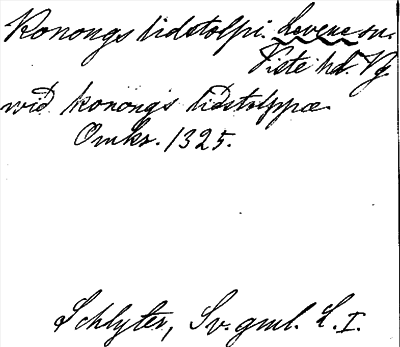 Konongs lidstolpi. Levene sn.
Viste hd. Vg.
wið konongs lidstolppæ
Omkr. 1325.
Schlyter, Sv. gml. L. I.